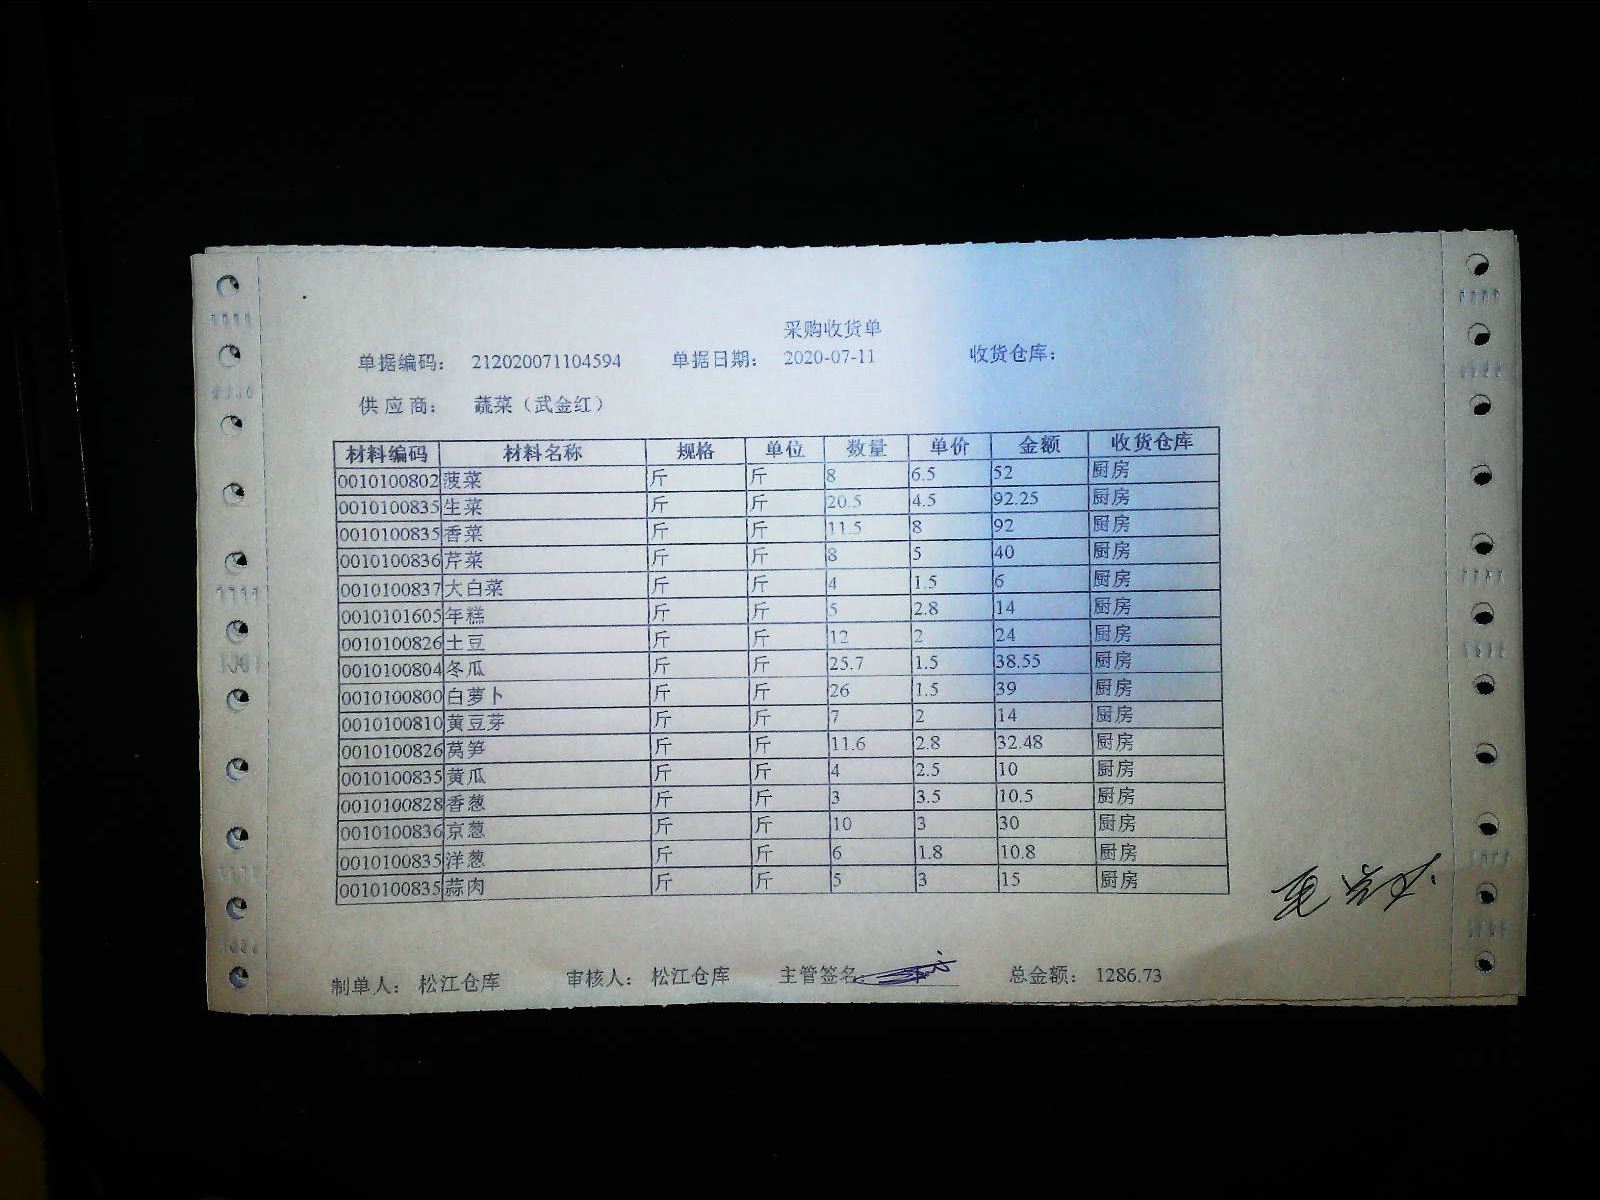 采购收货单
单据编码： 212020071104594 单据日期： 2020-07-11 收货仓库：
供应商： 蔬菜（武金红）
材料编码 材料名称 规格 单位 数量 单价 金额 收货仓库
0010100802 菠菜 斤 斤 8 6.5 52 厨房
0010100835 生菜 斤 斤 20.5 4.5 92.25 厨房
0010100835 香菜 斤 斤 11.5 8 92 厨房
0010100836 芹菜 斤 斤 8 5 40 厨房
0010100837 大白菜 斤 斤 4 1.5 6 厨房
0010101605 年糕 斤 斤 5 2.8 14 厨房
0010100826 土豆 斤 斤 12 2 24 厨房
0010100804 冬瓜 斤 斤 25.7 1.5 38.55 厨房
0010100800 白萝卜 斤 斤 26 1.5 39 厨房
0010100810 黄豆芽 斤 斤 7 2 14 厨房
0010100826 莴笋 斤 斤 11.6 2.8 32.48 厨房
0010100835 黄瓜 斤 斤 4 2.5 10 厨房
0010100828 香葱 斤 斤 3 3.5 10.5 厨房
0010100836 京葱 斤 斤 10 3 30 厨房
0010100835 洋葱 斤 斤 6 1.8 10.8 厨房
0010100835 蒜肉 斤 斤 5 3 15 厨房
制单人： 松江仓库 审核人： 松江仓库 主管签名 总金额： 1286.73